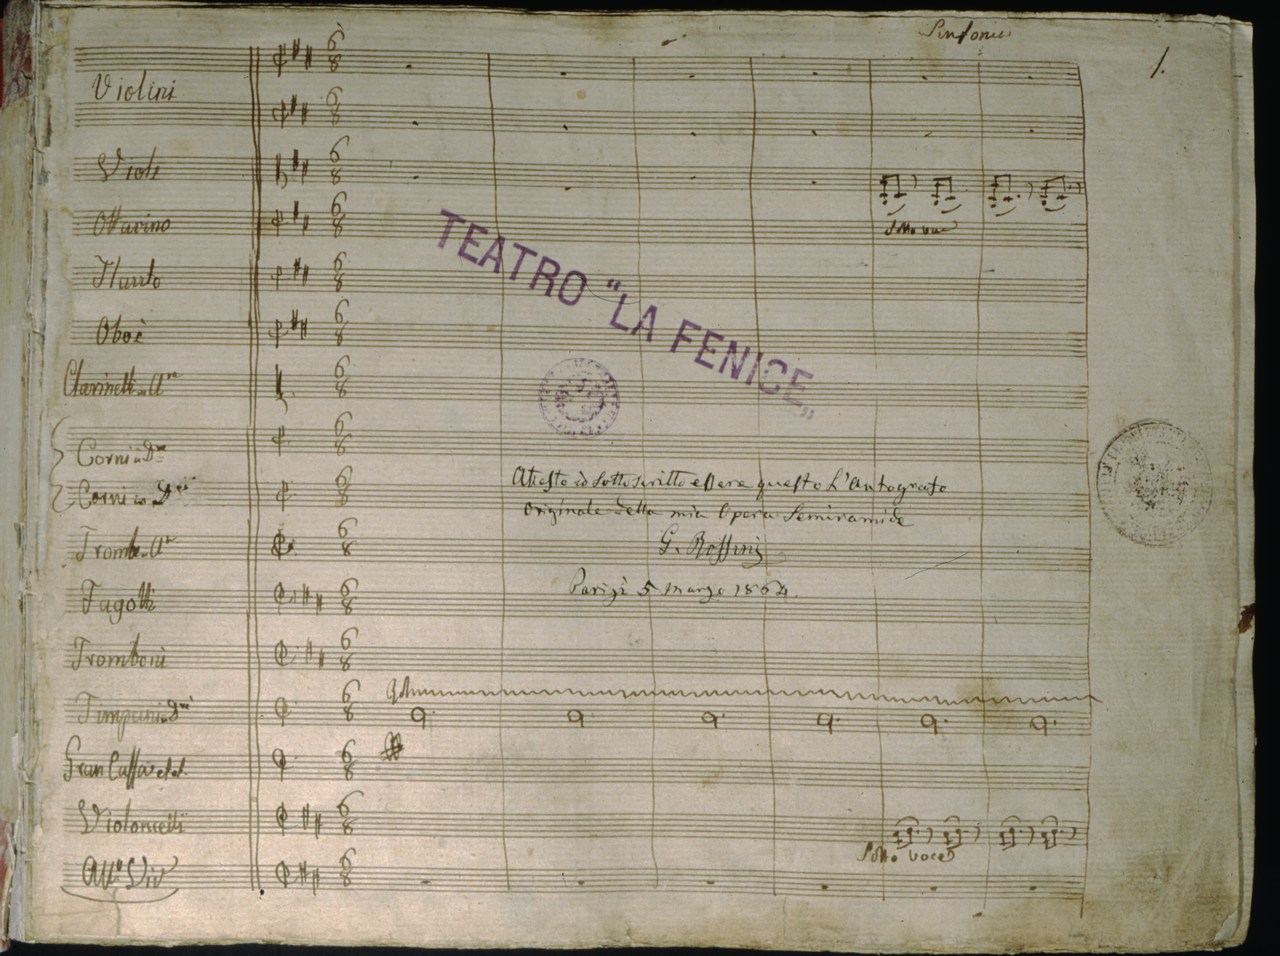 Sinfonia
1.
Violini
Viole
sotto voce
Ottavino
Flauto
TEATRO "LA FENICE„
Oboè
Clarinetti in A
Corni in D
Corni in D
Attesto io sottoscritto essere questo l'Autografo
Originale della mia Opera Semiramide
Trombe in A
G. Rossini
Fagotti
Parigi 5 Marzo 1864.
Tromboni
Timpani in D
Gran Cassa
Violoncelli
sotto voce
All.º Viv